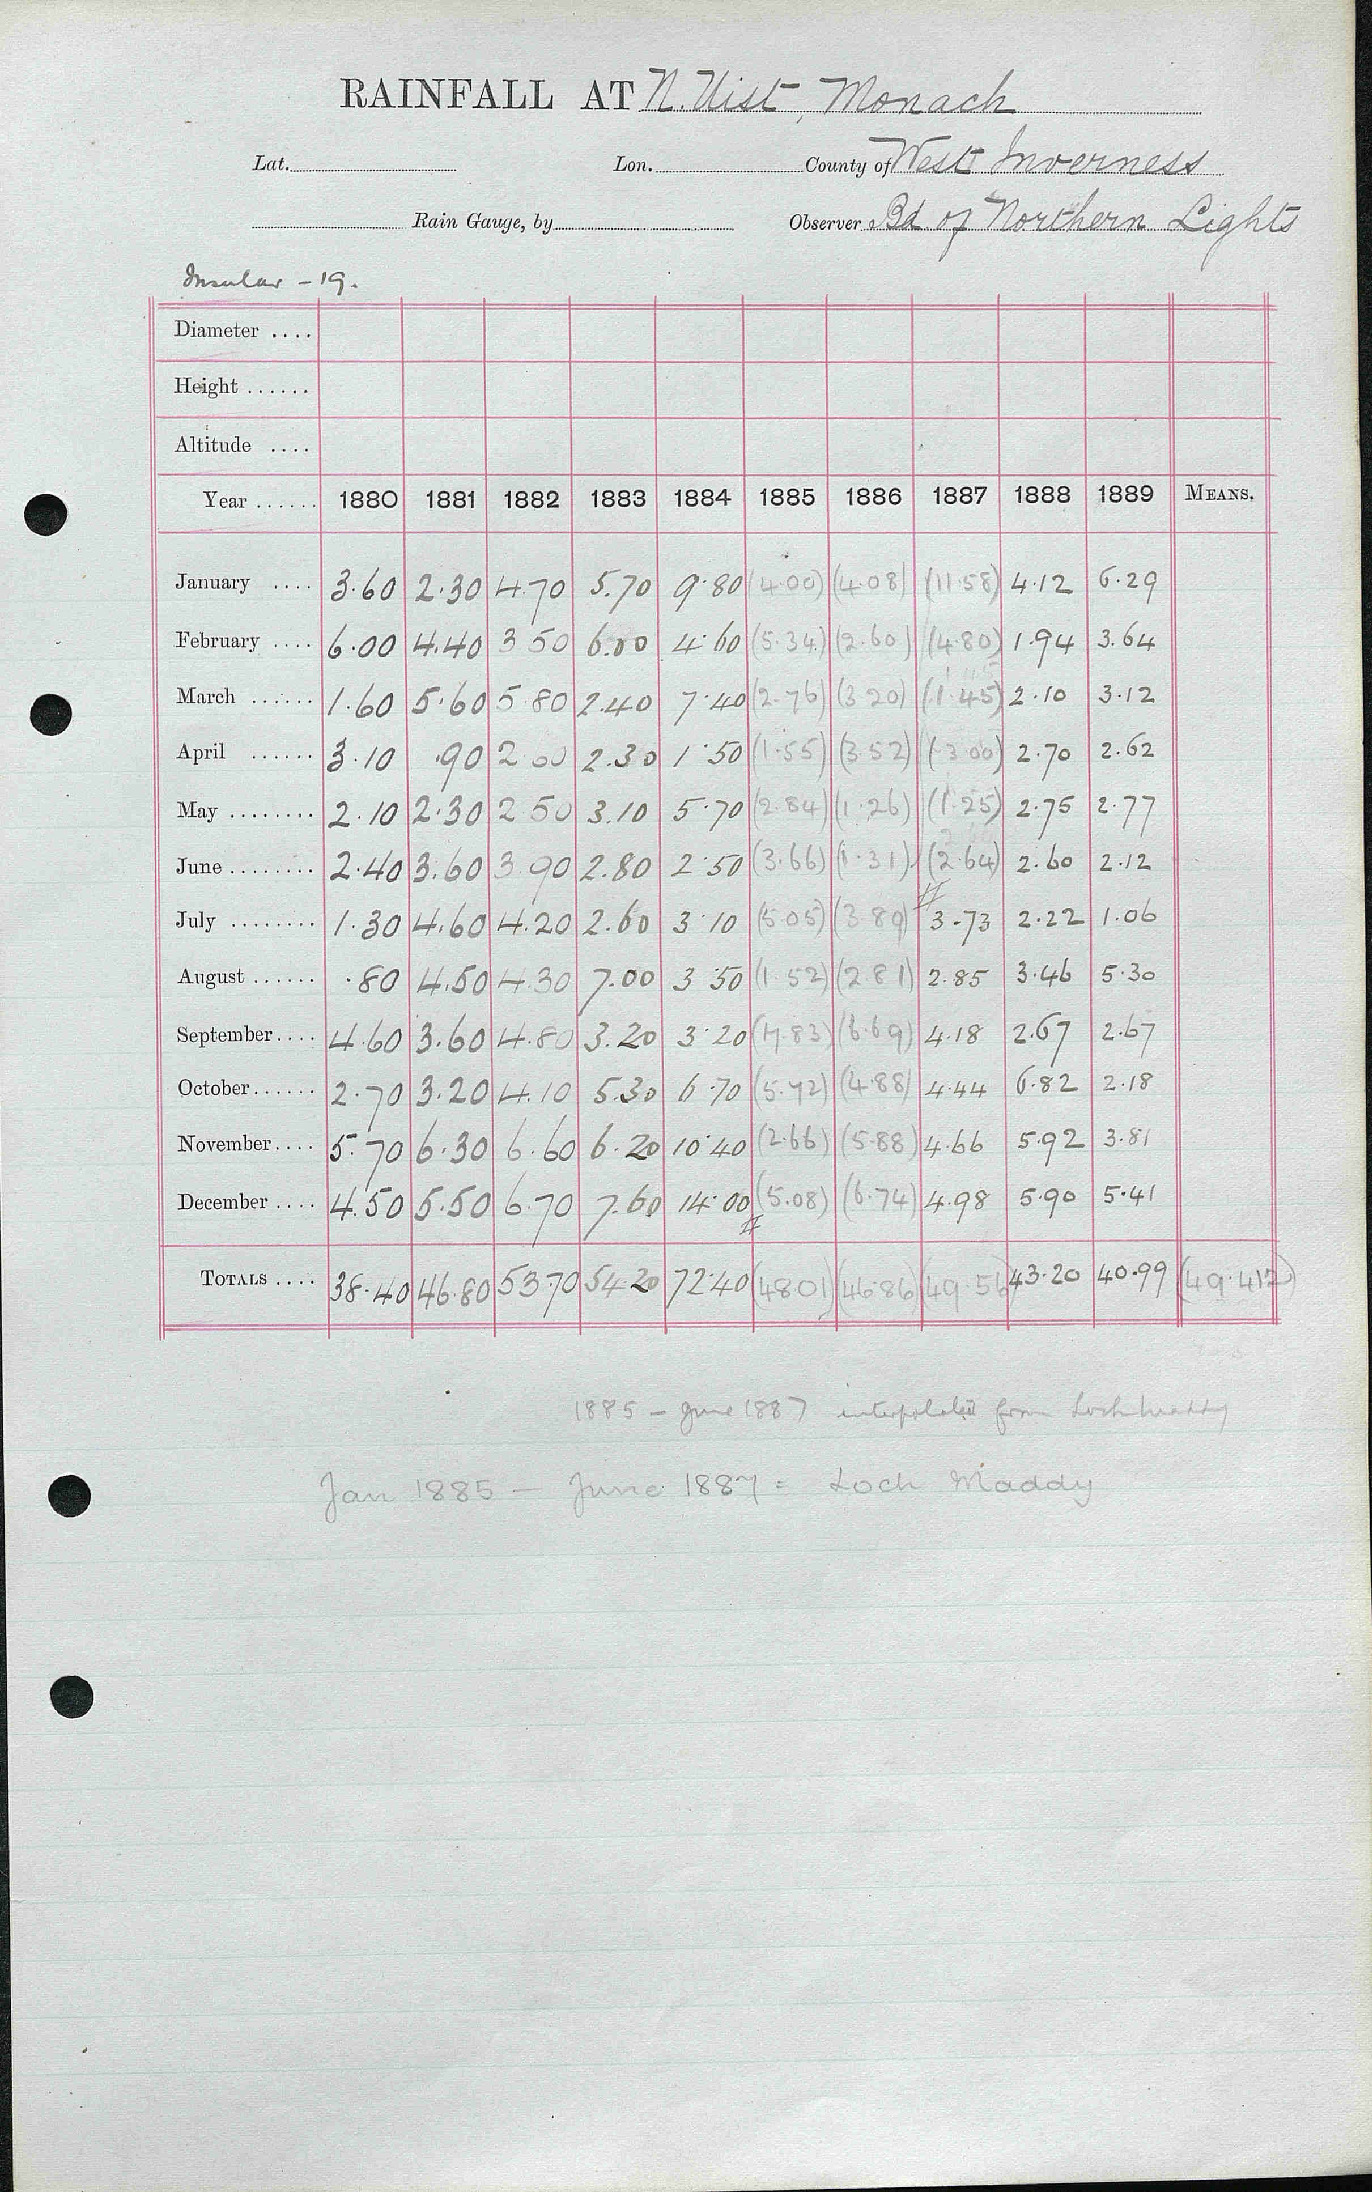 RAINFALL AT N. Uist, Monach
Lat. Lon. County of West Inverness
Rain Gauge, by Observer Bd of Northern Lights
Insular - 19.
Diameter ....
Height ......
Altitude ....
Year ...... 1880 1881 1882 1883 1884 1885 1886 1887 1888 1889 MEANS.
January .... 3.60 2.30 4.70 5.70 9.80 (4.00) (4.08) (11.58) 4.12 6.29
February .... 6.00 4.40 3 50 6.00 4.60 (5.34) (2.60) (4.80) 1.94 3.64
March ...... 1.60 5.60 5 80 2.40 7.40 (2.76) (3 20) (1.45) 2.10 3.12
April ...... 3.10 .90 2 00 2.30 1.50 (1.55) (3.52) (3.00) 2.70 2.62
May ........ 2.10 2.30 2 50 3.10 5.70 (2.84) (1.26) (1.25) 2.75 2.77
June ........ 2.40 3.60 3 90 2.80 2.50 (3.66) (1.31) (2.64) 2.60 2.12
July ........ 1.30 4.60 4.20 2.60 3 10 (5.05) (3.89) 3.73 2.22 1.06
August ...... .80 4.50 4.30 7.00 3 50 (1 52) (2.81) 2.85 3.46 5.30
September .... 4.60 3.60 4.80 3.20 3 20 (7.83) (6.69) 4.18 2.67 2.67
October ...... 2.70 3.20 4.10 5.30 6.70 (5.72) (4.88) 4.44 6.82 2.18
November .... 5.70 6.30 6.60 6.20 10.40 (2.66) (5.88) 4.66 5.92 3.81
December .... 4.50 5.50 6.70 7.60 14.00 (5.08) (6.74) 4.98 5.90 5.41
TOTALS .... 38.40 46.80 53.70 54.20 72.40 (48.01) (46.86) (49.56) 43.20 40.99 (49.412)
1885 - June 1887 interpolated from Lochmaddy
Jan 1885 - June 1887 = Loch Maddy